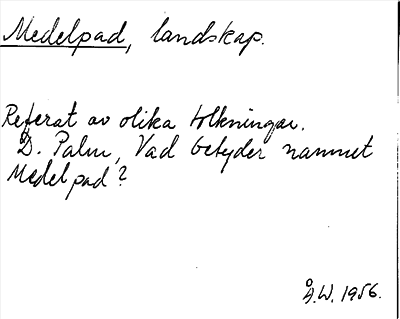 Medelpad, landskap.
Referat av olika tolkningar.
D. Palm, Vad betyder namnet
Medelpad?
Å.W. 1956.